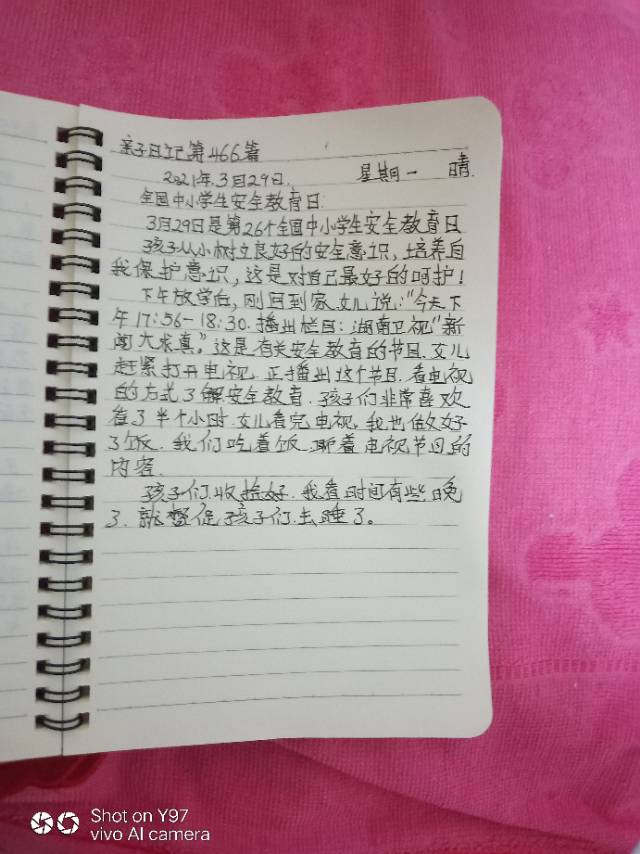 亲子日记第466篇
2021年.3月29日. 星期一 晴.
全国中小学生安全教育日.
3月29日是第26个全国中小学生安全教育日
孩子从小树立良好的安全意识，培养自
我保护意识，这是对自己最好的呵护！
下午放学后，刚回到家.女儿说：“今天下
午17:56-18:30.播出栏目：湖南卫视“新
闻大求真”。这是有关安全教育的节目.女儿
赶紧打开电视.正播出这个节目.看电视
的方式了解安全教育.孩子们非常喜欢
看了半个小时.女儿看完电视，我也做好
了饭.我们吃着饭.聊着电视节目的
内容.
孩子们.收拾好.我看时间有些晚
了.就督促孩子们.去睡了。
Shot on Y97
vivo AI camera